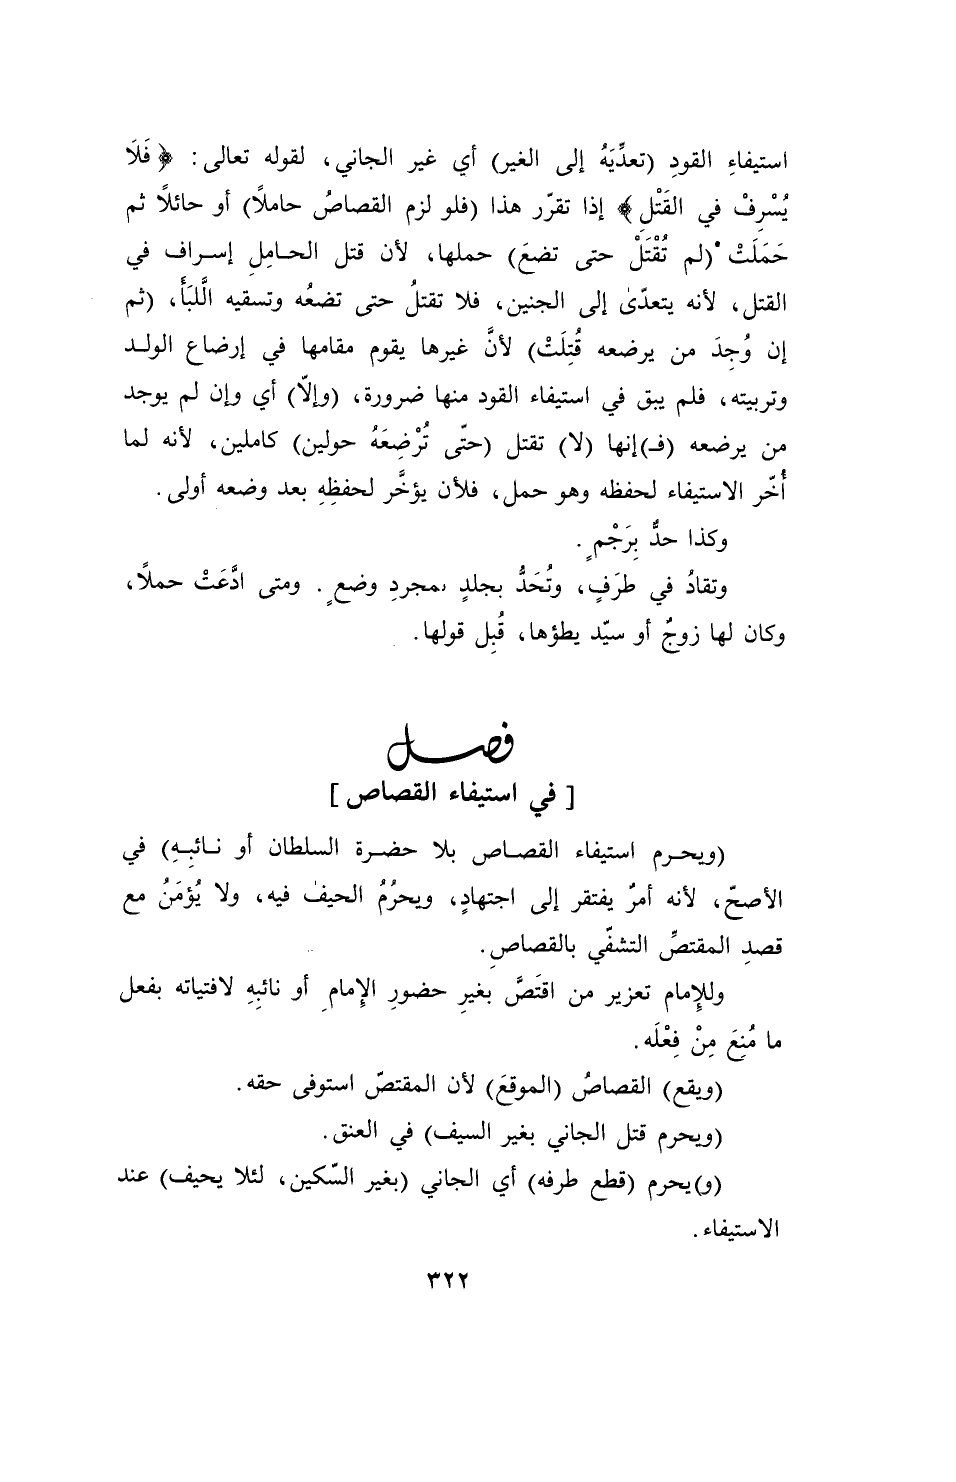 استيفاءِ القودِ (تعدِّيَهُ إلى الغير) أي غير الجاني، لقوله تعالى: ﴿فَلَا
يُسْرِفْ في القَتْلِ﴾ إذا تقرّر هذا (فلو لزم القصاصُ حاملاً) أو حائلاً ثم
حَمَلَتْ (لم تُقْتَلْ حتى تضعَ) حملها، لأن قتل الحـاملِ إسـراف في
القتل، لأنه يتعدّىٰ إلى الجنين، فلا تقتلُ حتى تضعُه وتسقيه الَّلبَأَ، (ثم
إن وُجِدَ من يرضعه قُتِلَتْ) لأنَّ غيرها يقوم مقامها في إرضاع الولـد
وتربيته، فلم يبق في استيفاء القود منها ضرورة، (وإلّا) أي وإن لم يوجد
من يرضعه (فـ)إنها (لا) تقتل (حتّى تُرْضِعَهُ حولين) كاملين، لأنه لما
أُخّر الاستيفاء لحفظه وهو حمل، فلأن يؤخَّر لحفظِهِ بعد وضعه أولى.
وكذا حدٌّ بِرَجْمٍ.
وتقادُ في طرَفٍ، وتُحَدُّ بجلدٍ بمجردِ وضعٍ. ومتى ادَّعَتْ حملاً،
وكان لها زوجٌ أو سيّد يطؤها، قُبِل قولها.
فصـل
[ في استيفاء القصاص ]
(ويحـرم استيفاء القصـاص بلا حضـرة السلطان أو نـائبِـهِ) في
الأصحّ، لأنه أمرٌ يفتقر إلى اجتهادٍ، ويحرُمُ الحيفُ فيه، ولا يُؤمَنُ مع
قصدِ المقتصِّ التشفّي بالقصاصِ.
وللإمام تعزير من اقتَصَّ بغيرِ حضورِ الإمامِ أو نائبِهِ لافتياته بفعل
ما مُنِعَ مِنْ فِعْلَه.
(ويقع) القصاصُ (الموقعَ) لأن المقتصّ استوفى حقه.
(ويحرم قتل الجاني بغير السيف) في العنق.
(و)يحرم (قطع طرفه) أي الجاني (بغير السّكين، لئلا يحيف) عند
الاستيفاء.
٣٢٢